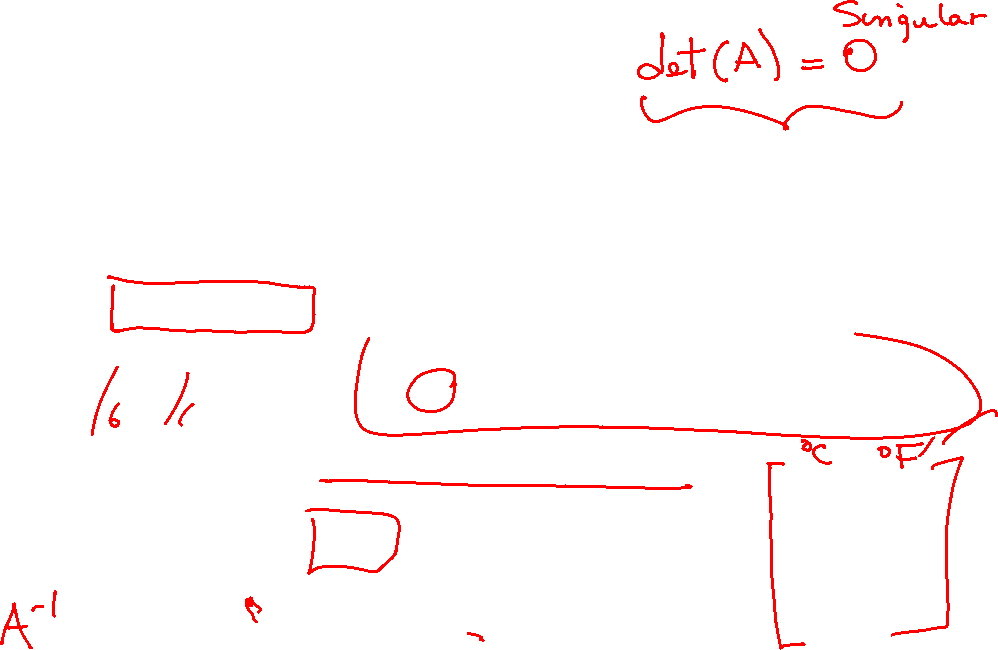 Singular
det(A) = 0
/6 /(
°C °F
A⁻¹